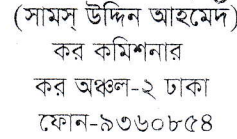 (সামস্ উদ্দিন আহমেদ)
কর কমিশনার
কর অঞ্চল-২ ঢাকা
ফোন-৯৩৬০৮৫৪